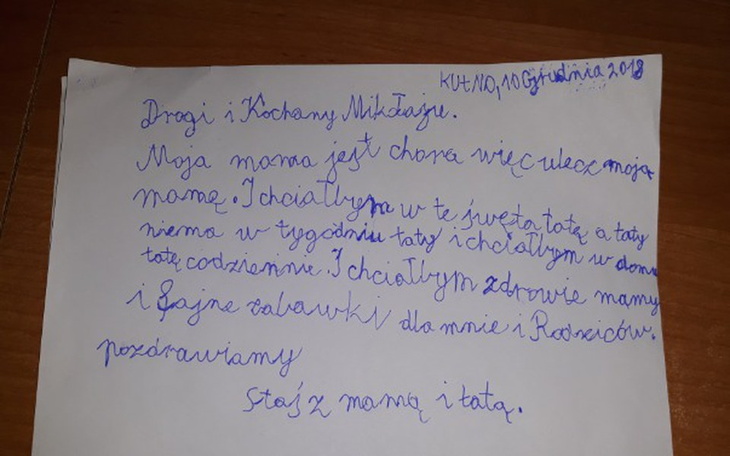 KUtNO, 10 Grudnia 2018
Drogi i Kochany Mikołaju.
Moja mama jest chora więc ulecz moja
mamę. I chciałbym w te święta tatę a taty
niema w tygodniu taty i chciałbym w domu
tatę codziennie. I chciałbym zdrowie mamy
i fajne zabawki dla mnie i Rodziców.
pozdrawiamy
Staś z mamą i tatą.